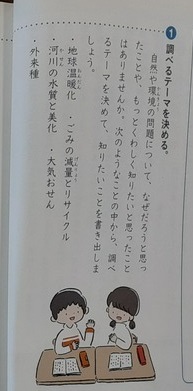 1 調べるテーマを決める。
自然や環境の問題について、なぜだろうと思っ
たことや、もっとくわしく知りたいと思ったこと
はありませんか。次のようなことの中から、調べ
るテーマを決めて、知りたいことを書き出しま
しょう。
・地球温暖化 ・ごみの減量とリサイクル
・河川の水質と美化 ・大気おせん
・外来種